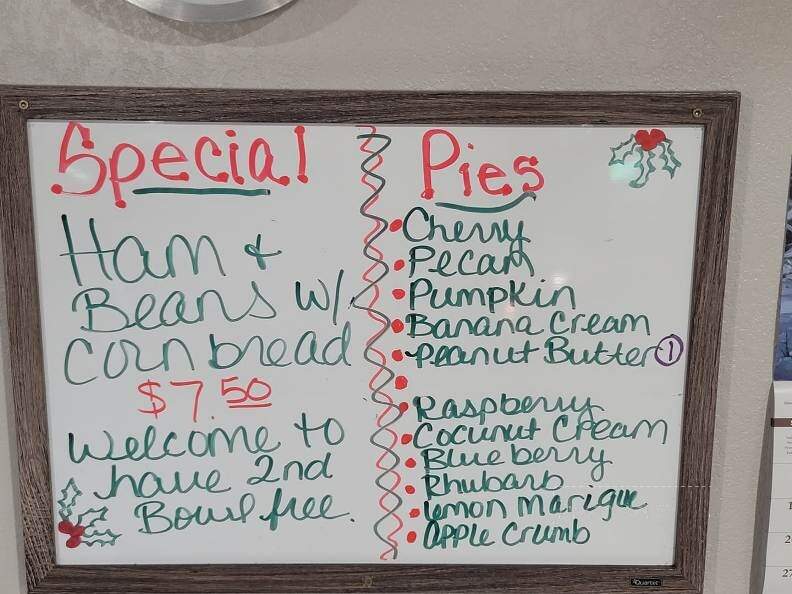 Special
Ham &
Beans w/
Corn bread
$7.50
Welcome to
have 2nd
Bowl free.
Pies
Cherry
Pecan
Pumpkin
Banana Cream
Peanut Butter 1
Raspberry
Cocunut Cream
Blueberry
Rhubarb
Lemon Marigue
Apple Crumb
Quartet
27